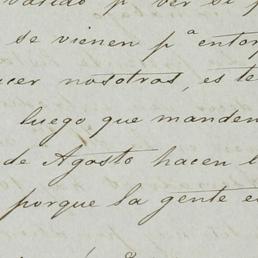 por ver si p
se vienen pª entor
cer nosotros, es te
luego que manden
de Agosto hacen l
porque la gente e